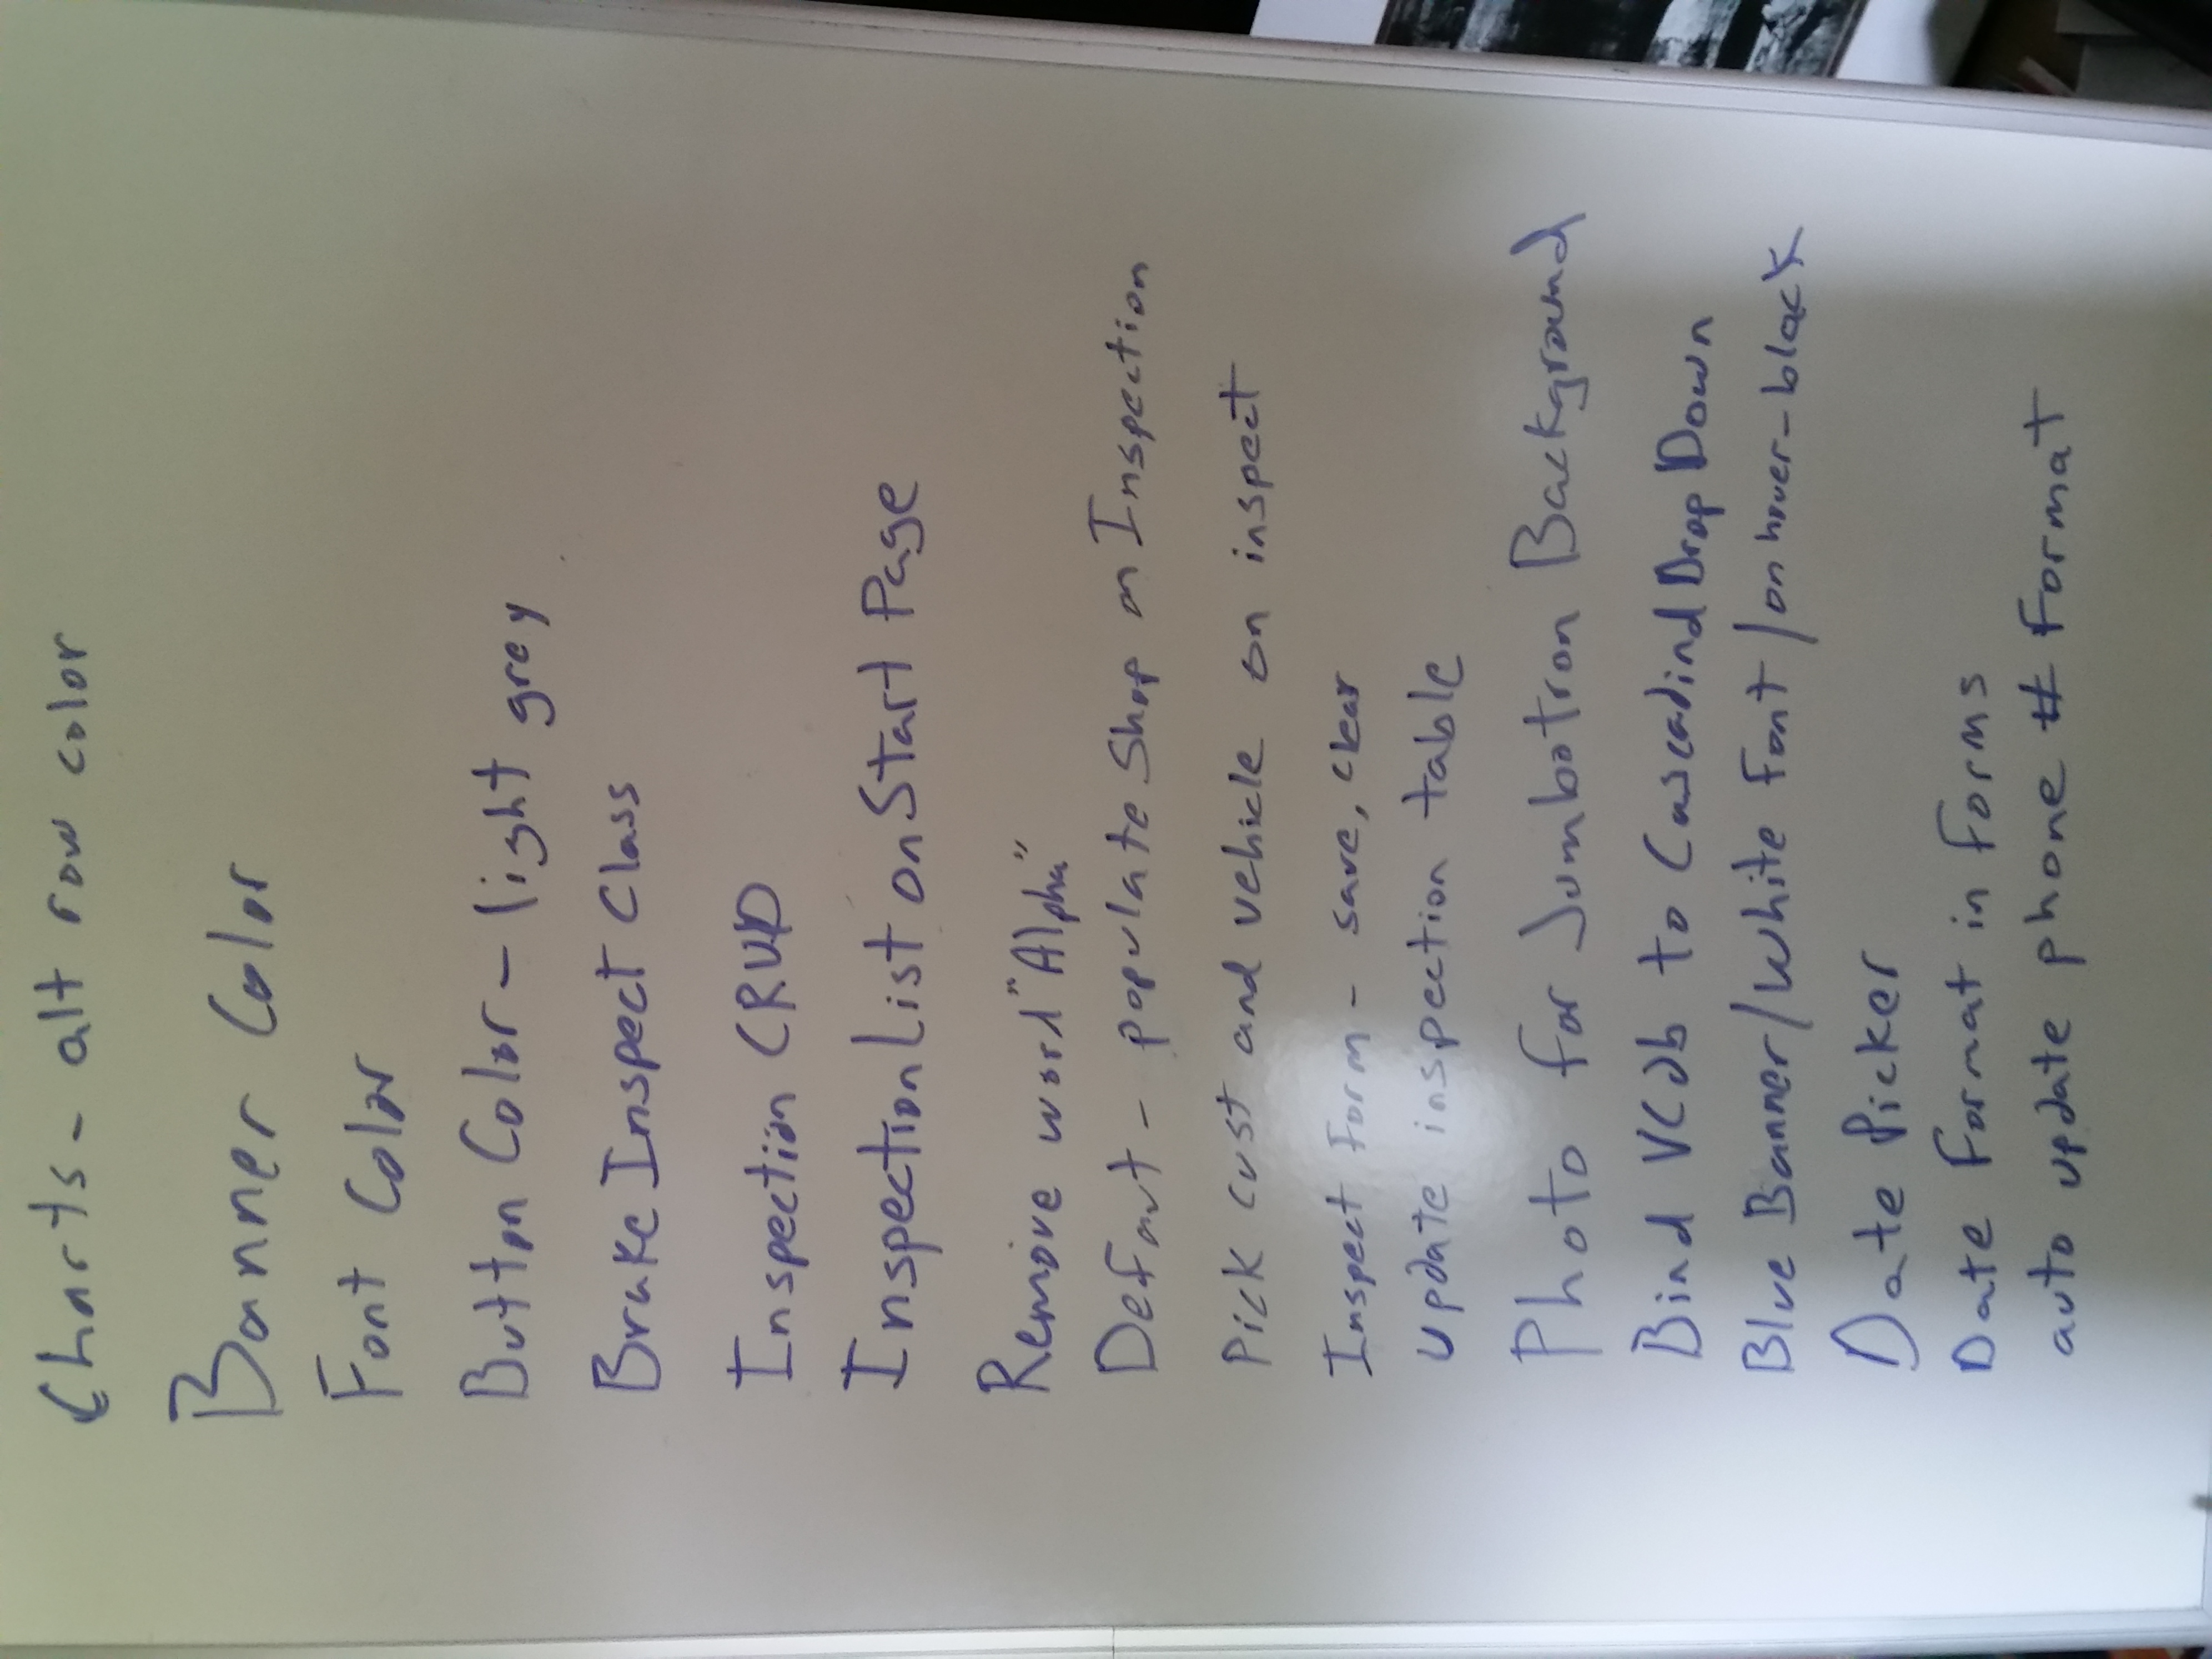 Charts - alt row color
Banner Color
Font Color
Button Color - light grey
Brake Inspect Class
Inspection CRUD
Inspection List on Start Page
Remove word "Alpha"
Defaut - populate Shop on Inspection
Pick cust and vehicle on inspect
Inspect Form - save, clear
Update inspection table
Photo for Jumbotron Background
Bind VCdb to Cascadind Drop Down
Blue Banner/White Font/on hover-black
Date Picker
Date Format in Forms
auto update phone # Format